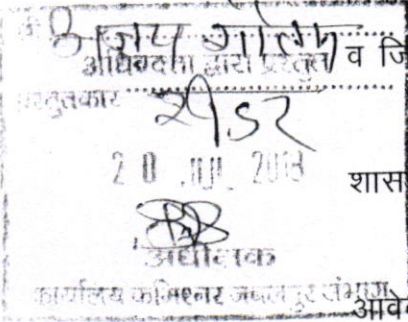 श्री अजय
अधिवक्ता द्वारा प्रस्तुत व जि
प्रस्तुतकार रीडर
20 JUL 2018
शास
अधीक्षक
कार्यालय कमिश्नर जबलपुर संभाग
आवे